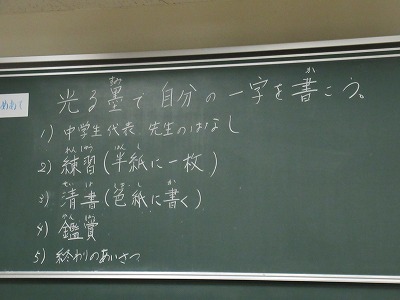 めあて
光る墨で自分の一字を書こう。
1) 中学生代表 先生のはなし
2) 練習(半紙に一枚)
3) 清書(色紙に書く)
4) 鑑賞
5) 終わりのあいさつ